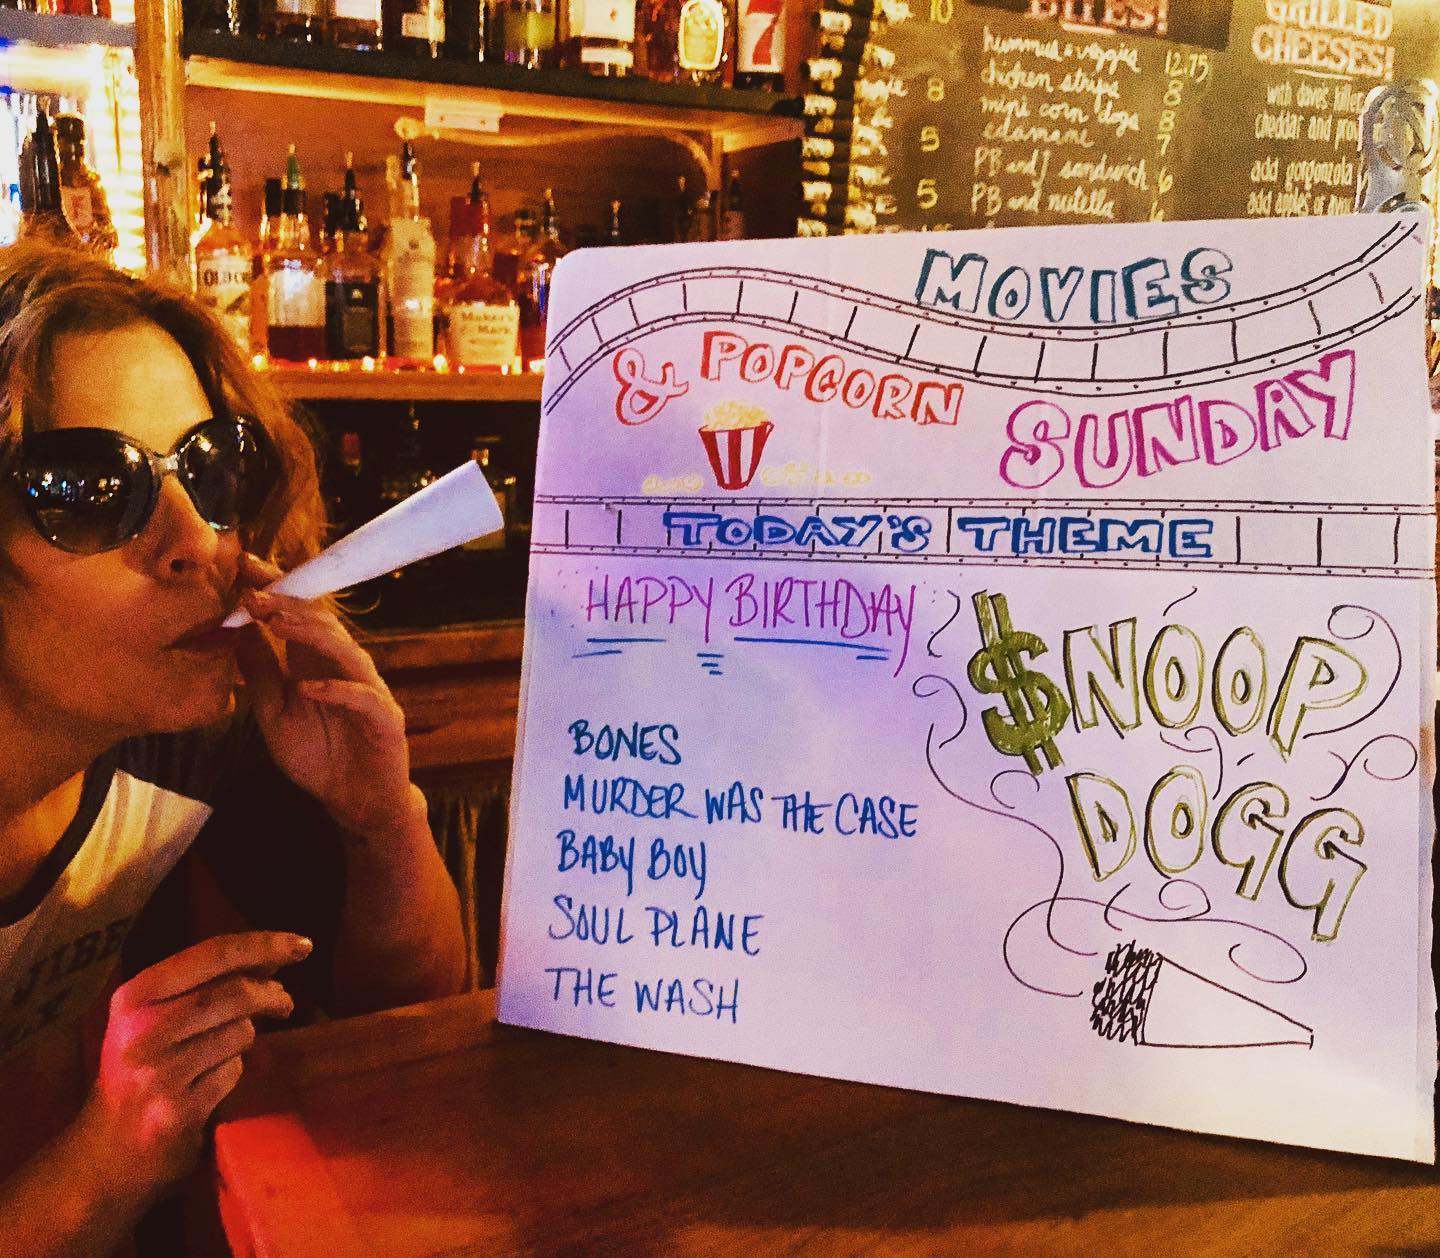 BITES!
hummus + veggies 12.75
chicken strips 8
mini corn dogs 8
edamame 7
PB and J sandwich 6
PB and nutella 6
10
8
5
5
GRILLED
CHEESES!
with dave's killer
cheddar and prov
add gorgonzola
add apples or
OLD
Maker's
Mark
7
MOVIES
& POPCORN
SUNDAY
TODAY'S THEME
HAPPY BIRTHDAY
$NOOP
DOGG
BONES
MURDER WAS THE CASE
BABY BOY
SOUL PLANE
THE WASH